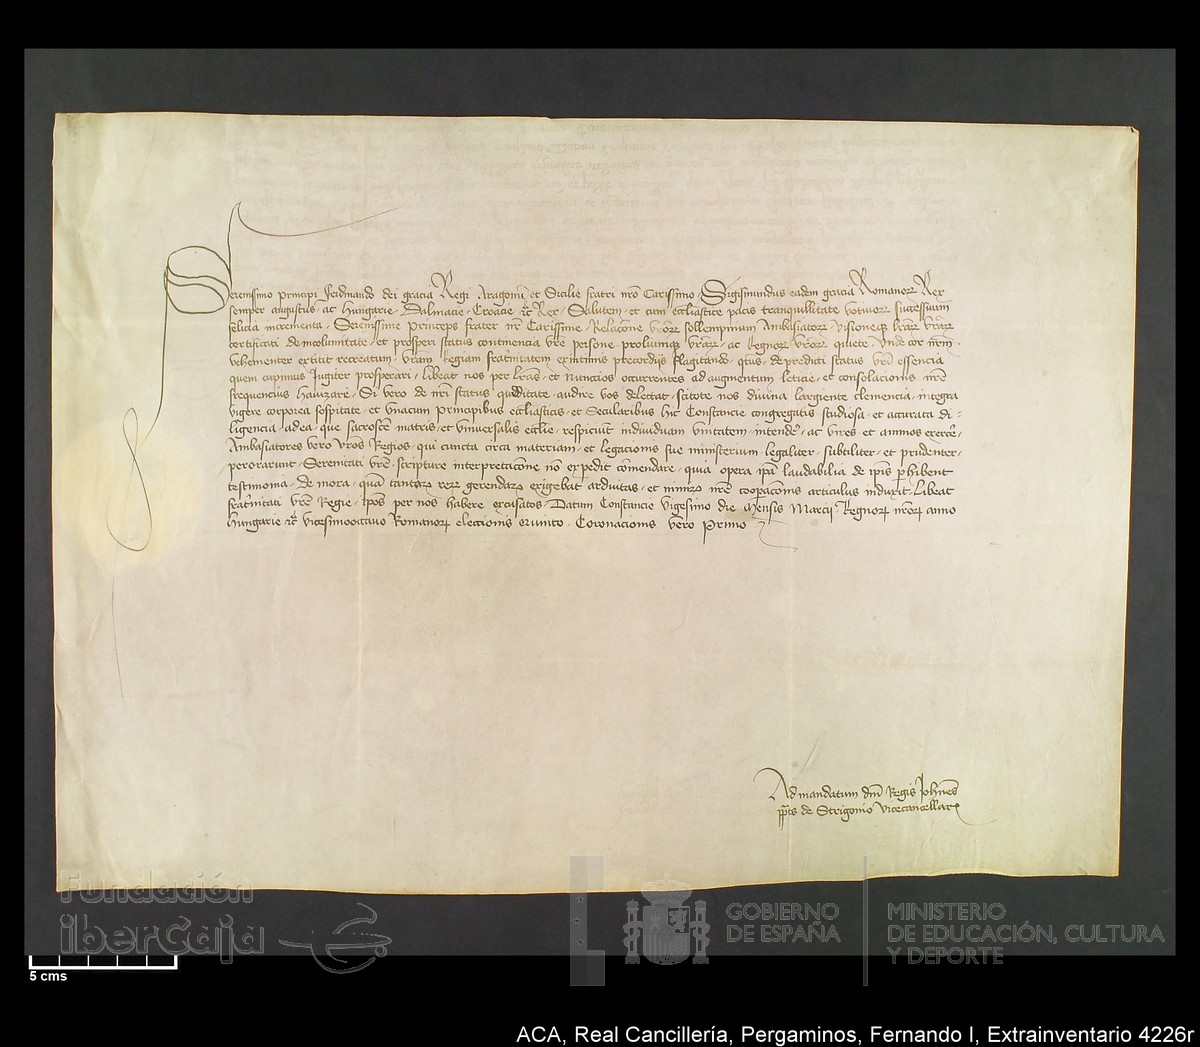 Serenissimo principi Ferdinando dei gracia Regi Aragonū et Sicilie fratri nrō Carissimo Sigismundus eadem gracia Romanorꝝ Rex
semper augustus ac Hungarie Dalmacie Croacie ⁊c̄ Rex Salutem et cum eccliastice pacis tranquillitate votivorꝝ successuum
felicia incrementa Serenissime Princeps frater nr̄ Carissime Relacōne vrōrꝝ sollempnium Ambasiatorꝝ visioneqꝫ lrārꝝ vrārꝝ
certificati de incolumitate et prosperi status continencia vrē persone proliumqꝫ vrārꝝ ac Regnorꝝ vrōrꝝ quiete Unde cor nrm̄
vehementer extitit recreatum vrām Regiam fratnitatem ex intimis precordijs flagitando qtn̄s de predicti status vrī essencia
quem cupimus Jugiter prosperari libeat nos per lrās et Nuncios occurrentes ad augmentum leticie et consolacionis nrē
frequencius Si vero de nrī status quiditate audire vos delectat scitote nos divina largiente clemencia integra
vigere corporea sospitate et unacum Principibus eccliasticis et Secularibus hic Constancie congregatis studiosa et accurata di-
ligencia ad ea que sacrosce matris et universalis ecclie respiciūt individuam unitatem intendē ac vires et animos exercē
Ambasiatores vero vrōs Regios qui cuncta circa materiam et legacionis sue ministerium legaliter subtiliter et prudenter
perorarunt Serenitati vrē scripture interpretacōne nō expedit cōmendare quia opera ipā laudabilia de ipīs phibent
testimonia de mora quā tantarꝝ rerꝝ gerendarꝝ exigebat arduitas et nimirꝝ nrē cooperacōnis articulus induxit libeat
fratnitati vrē Regie ipōs per nos habere excusatos Datum Constancie vigesimo die Mensis Marcij Regnorꝝ nrōrꝝ anno
Hungarie ⁊c̄ vicesimooctavo Romanorꝝ eleccionis Quinto Coronacionis vero Primo
Ad mandatum dnī Regis Johēs
ppts de Strigonio vicecancellarꝰ
Fundación
iberCaja
5 cms
GOBIERNO
DE ESPAÑA
MINISTERIO
DE EDUCACIÓN, CULTURA
Y DEPORTE
ACA, Real Cancillería, Pergaminos, Fernando I, Extrainventario 4226r